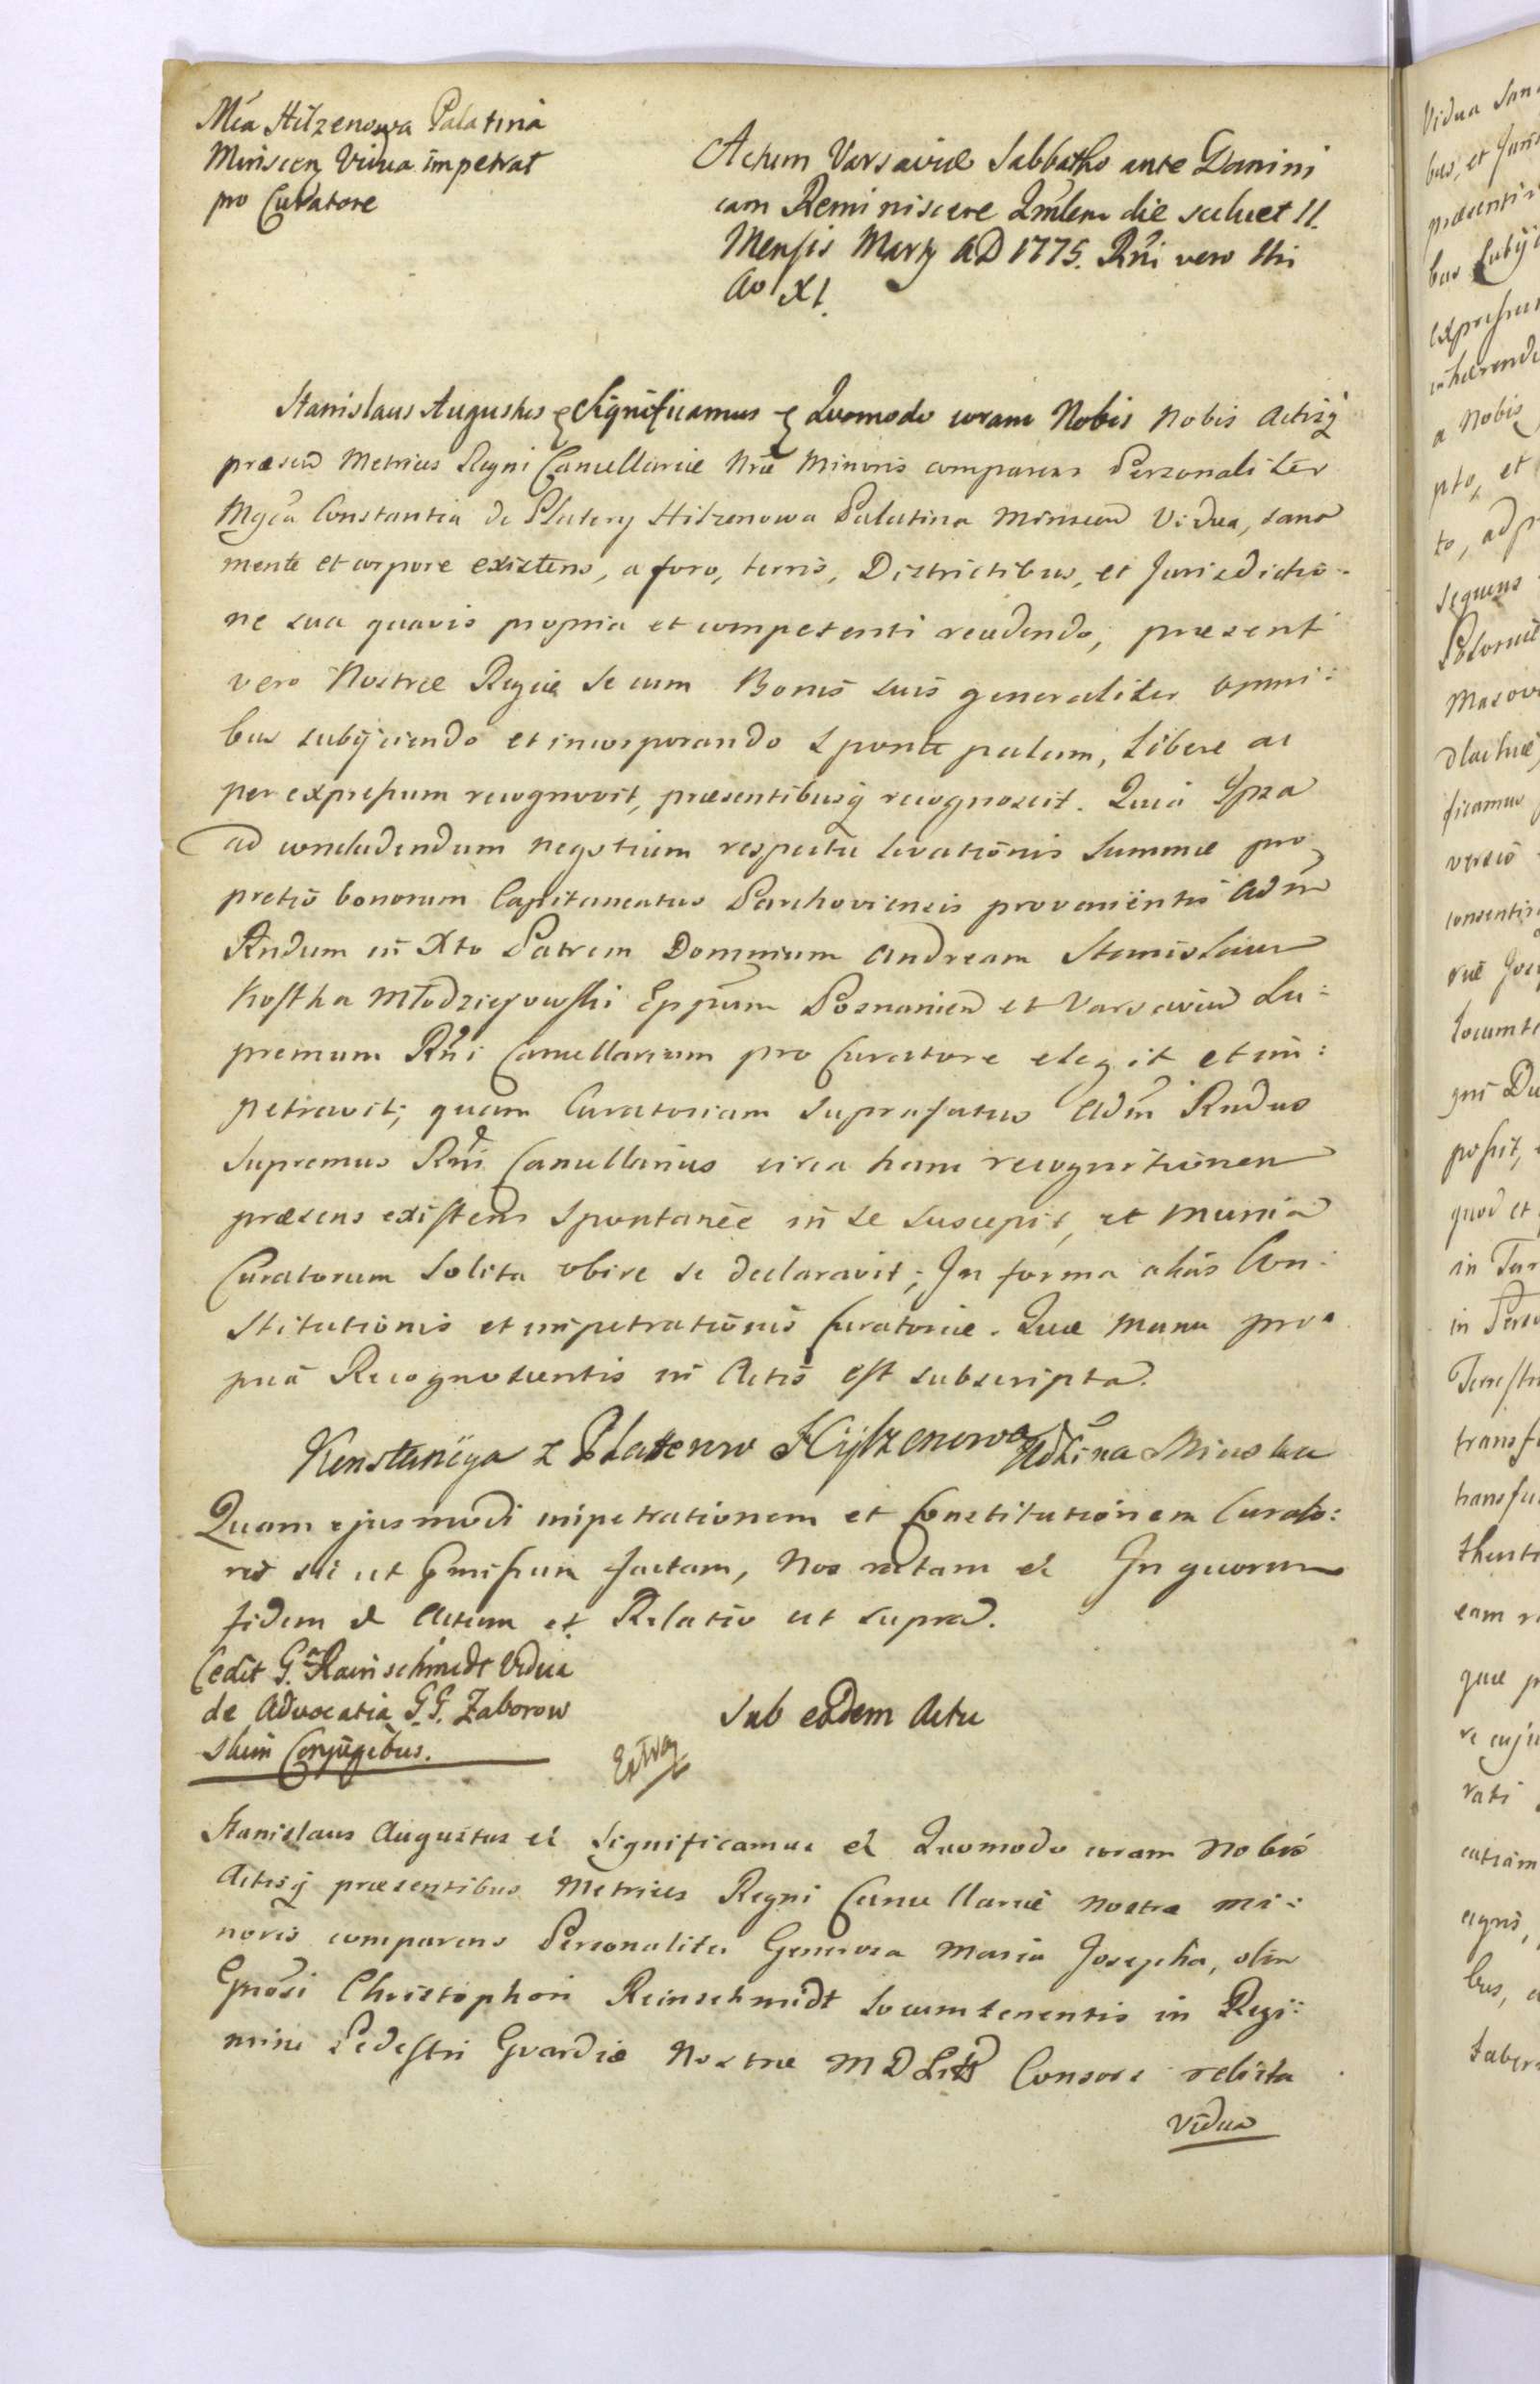 Mca Hilzenowa Palatina
Minscen Vidua impetrat
pro Curatore
Actum Varsaviæ Sabbatho ante Domini
cam Reminiscere Qūlem die scilicet 11.
Mensis Martÿ AD 1775. Rñi vero Ñri
Ao XI.
Stanislaus Augustus & Significamus & Quomodo coram Nobis Nobis Actisq
præsen Metrices Regni Cancellariæ Nræ Minoris comparens Personaliter
Mgca Constantia de Platery Hilzenowa Palatina Minscen Vidua, sana
mente et corpore existens, a foro, terris, Districtibus, et Jurisdictio-
ne sua quavis propria et competenti recedendo, præsenti
vero Nostræ Regiæ se cum Bonis suis generaliter omni:
bus subÿciendo et incorporando sponte palam, libere ac
per expressum recognovit, præsentibusq recognoscit. Quia Ipsa
ad concludendum negotium respectu levationis Summæ pro
pretio bonorum Capitaneatus Parchoviensis provenientis Adm
Rndum in Xto Patrem Dominum Andream Stanislaum
Kostka Młodziejowski Eppum Posnanien et Varsavien Su:
premum Rñi Cancellarium pro Curatore elegit et im:
petravit; quam Curatoriam suprafatus Adm Rndus
Supremus Rñi Cancellarius circa hanc recognitionem
præsens existens spontanee in se suscepit, et munia
Curatorum solita obire se declaravit; In forma alias Con:
stitutionis et impetrationis Curatoriæ. Quæ manu pro:
pria Recognoscentis in Actis est subscripta.
Konstancÿa z Platerow Hÿlzenowa Wdzina Minska
Quam ejusmodi impetrationem et Constitutionem Curato:
ris sui ut Præmissum factam, Nos ratam & In quorum
fidem & Actum et Relatio ut supra.
Cedit G. Rainschmidt Vidua
de Advocatia G.G. Zaborow
skim Conjugibus.
Sub eodem Actu
Extra
Stanislaus Augustus & Significamus & Quomodo coram Nobis
Actisq præsentibus Metrices Regni Cancellariæ Nostræ Mi:
noris comparens Personaliter Generosa Maria Josepha, olim
Gnosi Christophori Reinschmidt Locumtenentis in Regi:
mine Pedestri Gvardiæ Nostræ M D Litt Consors relicta
Vidua